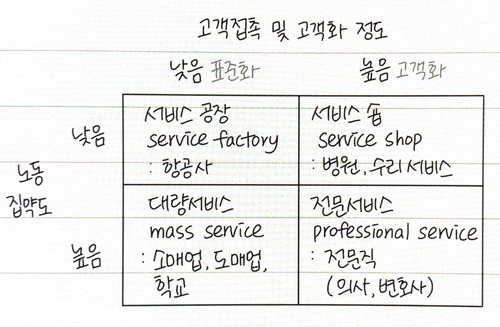 고객접촉 및 고객화 정도
낮음 표준화 높음 고객화
낮음
서비스 공장
service factory
: 항공사
서비스 숍
service shop
: 병원, 수리 서비스
노동
집약도
높음
대량서비스
mass service
: 소매업, 도매업,
학교
전문서비스
professional service
: 전문직
(의사, 변호사)